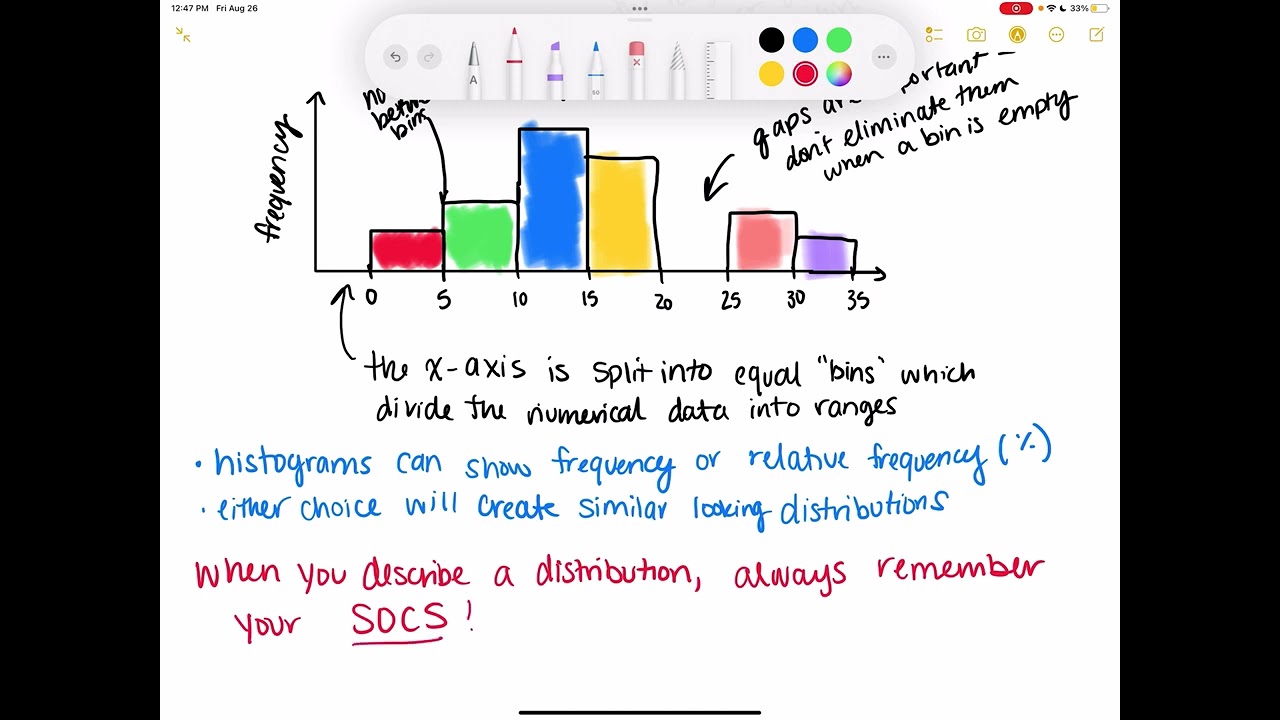 12:47 PM Fri Aug 26
33%
A
50
no
between
bins
gaps are important –
don't eliminate them
when a bin is empty
frequency
0 5 10 15 20 25 30 35
the x-axis is split into equal "bins" which
divide the numerical data into ranges
• histograms can show frequency or relative frequency (%)
• either choice will create similar looking distributions
When you describe a distribution, always remember
your SOCS!